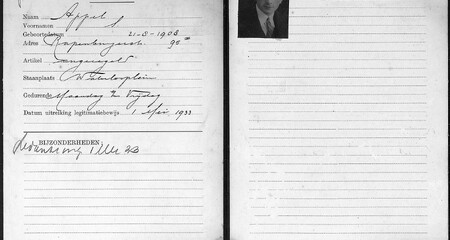 Naam Appel
Voornamen
Geboortedatum 21-3-1903
Adres Rapenburgerstr. 90
Artikel
Staanplaats Waterlooplein
Gedurende Maandag t/m Vrijdag
Datum uitreiking legitimatiebewijs 1 Mei 1933
BIJZONDERHEDEN: